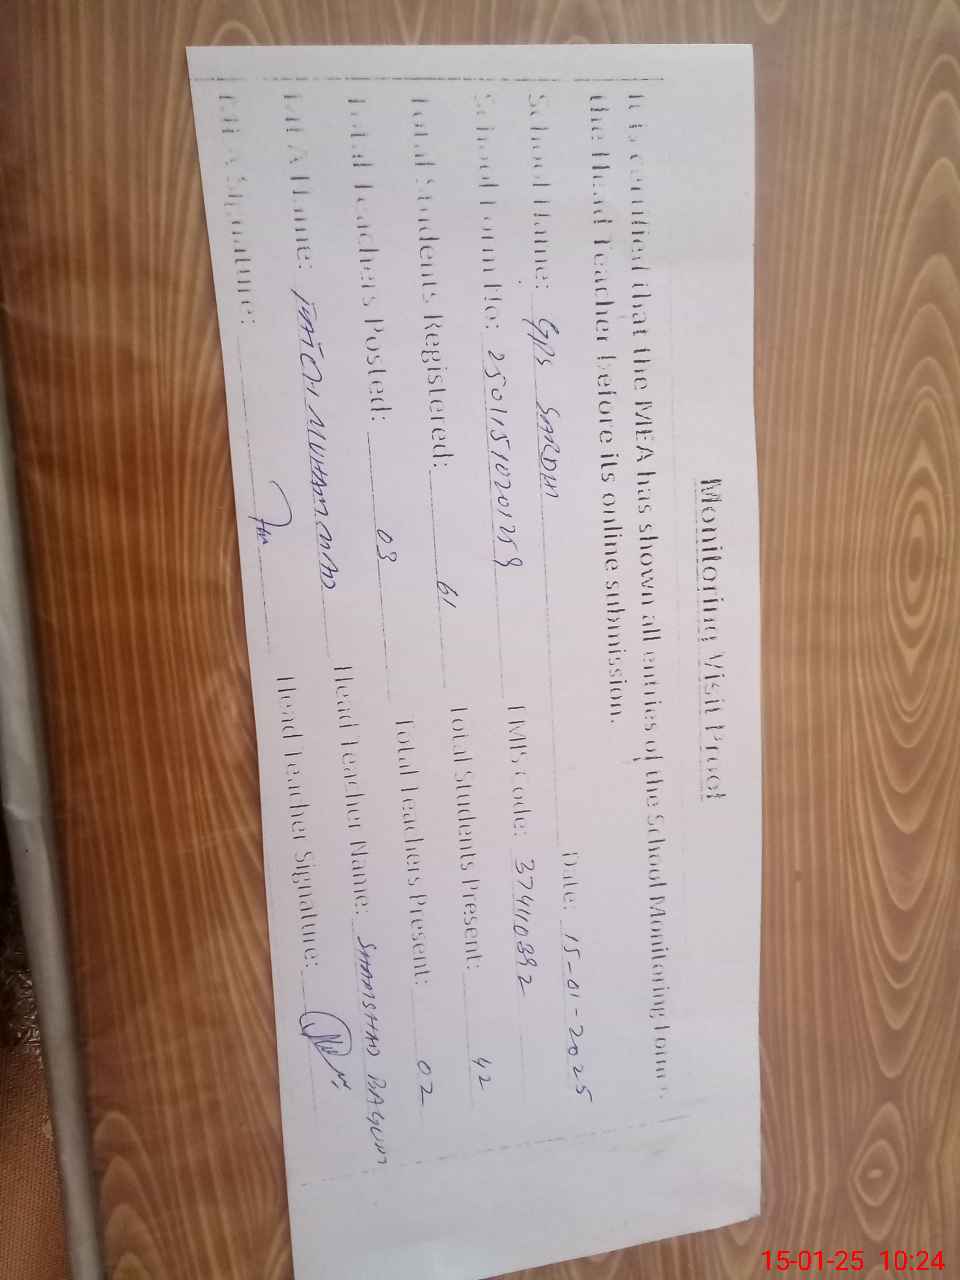 Monitoring Visit Proof
It is certified that the MEA has shown all entries of the School Monitoring Form to
the Head Teacher before its online submission.
Date: 15-01-2025
School Name: GGPS
School Form No: 25011510201259 EMIS Code: 37410392
Total Students Registered: 61 Total Students Present: 42
Total Teachers Posted: 03 Total Teachers Present: 02
MEA Name: MUHAMMAD Head Teacher Name: SHAMSHAD BAGUM
MEA Signature: Head Teacher Signature:
15-01-25 10:24